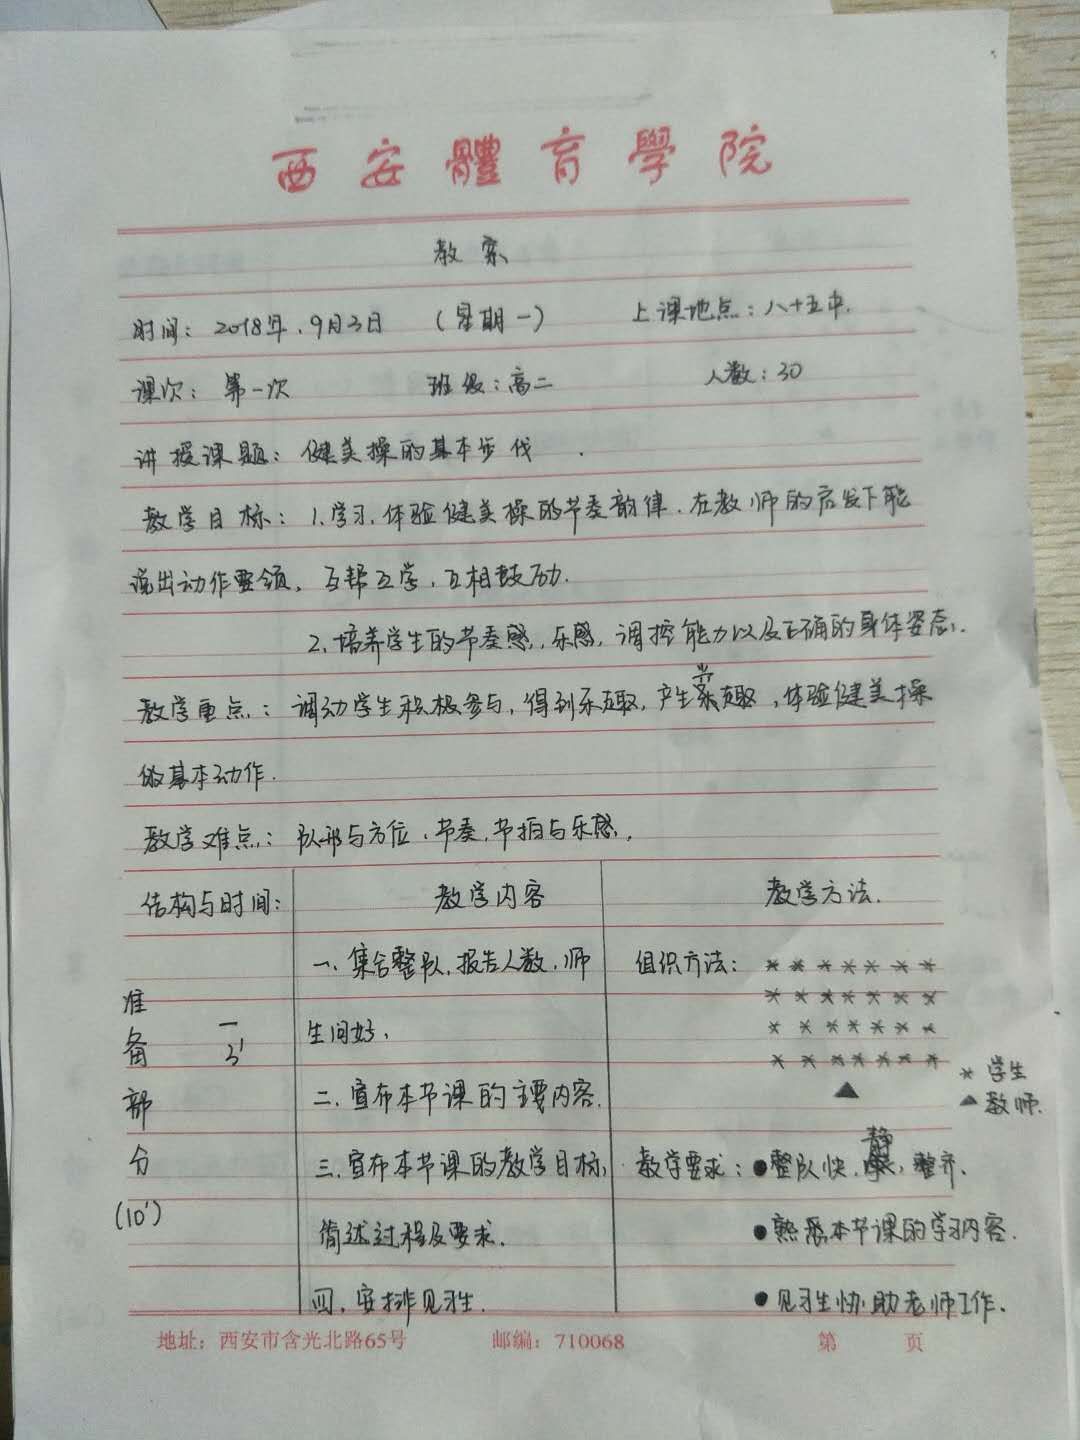 西安體育學院
教案
时间：2018年.9月3日 （星期一） 上课地点：八十五中.
课次：第一次 班级：高二 人数：30
讲授课题：健美操的基本步伐.
教学目标：1.学习.体验健美操的节奏韵律.在教师的启发下能
说出动作要领，互帮互学，互相鼓励.
2.培养学生的节奏感，乐感，调控能力以及正确的身体姿态.
教学重点：调动学生积极参与，得到乐趣，产生兴趣，体验健美操
的基本动作.
教学难点：队形与方位.节奏.节拍与乐感.
结构与时间： 教学内容 教学方法.
一、集合整队，报告人数，师 组织方法：
准
备 一 生问好.
3'
二.宣布本节课的主要内容. * 学生
部 ▲ 教师.
分 三.宣布本节课的教学目标， 教学要求：●整队快，静，整齐.
(10') 简述过程及要求. ●熟悉本节课的学习内容.
四.安排见习生. ●见习生协助老师工作.
地址：西安市含光北路65号 邮编：710068 第 页